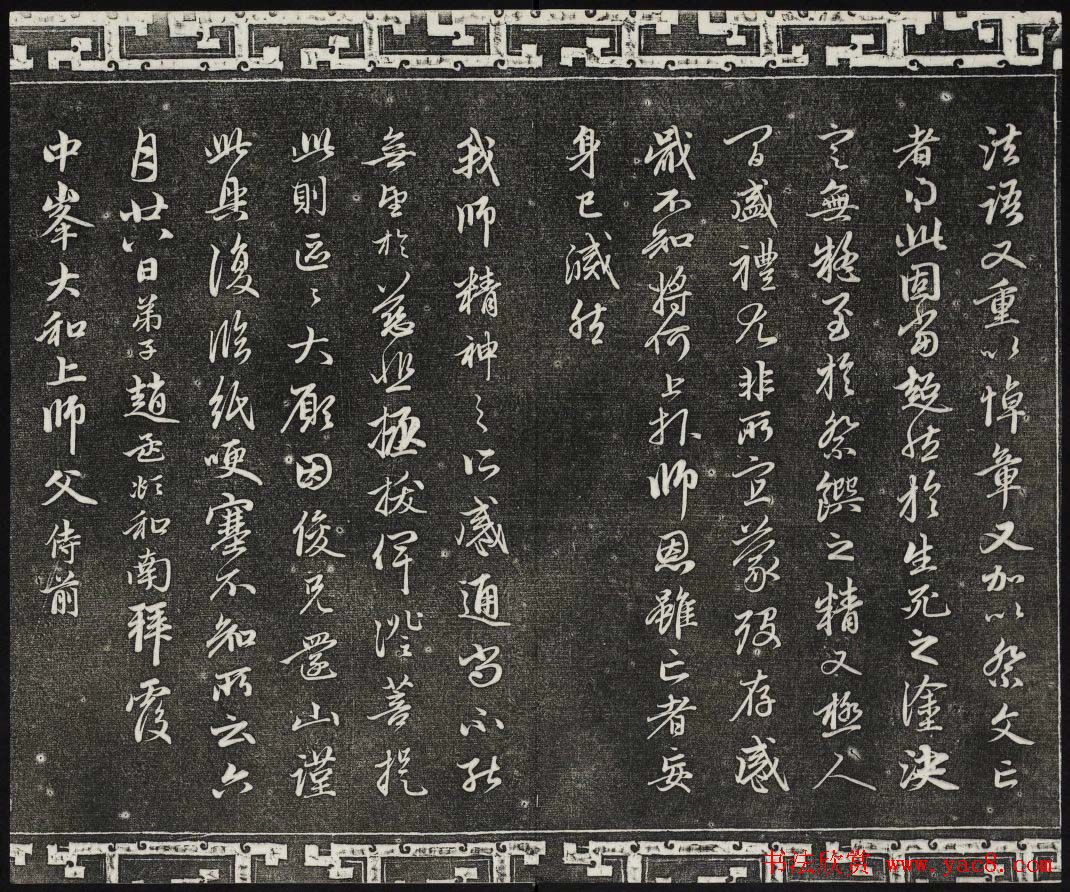 法語又重以悼章又加以祭文亡
者得此固當超然於生死之塗決
定無疑至於祭饌之精又極人
間盛禮尤非所宜蒙歿存感
戴不知將何上報師恩雖亡者妄
身已滅然
我師精神之所感通尚不能
無望於慈悲拯拔俾證菩提
此則區々大願因俊兄還山謹
此具復臨紙哽塞不知所云六
月廿八日弟子趙孟頫和南拜覆
中峯大和上師父侍前
书法欣赏 www.yac8.com